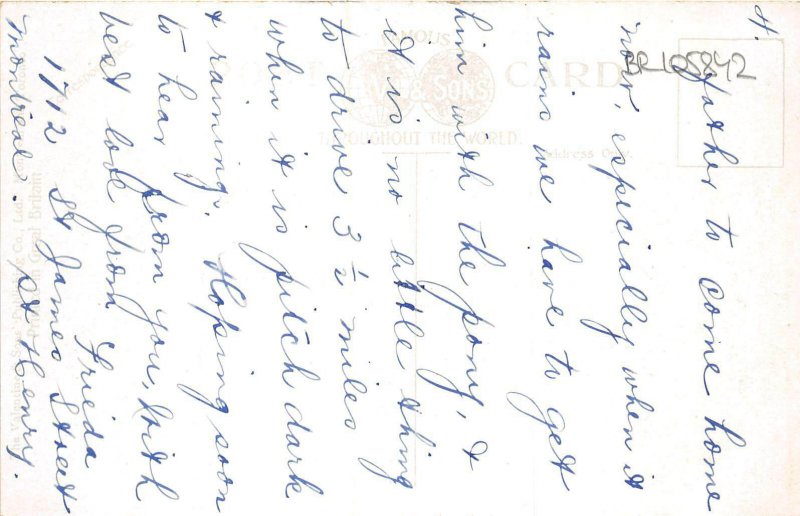 4.
father to come home
now, especially when it
rains we have to get
him with the pony, &
it is no little thing
to drive 3½ miles
when it is pitch dark
& raining. Hoping soon
to hear from you, With
best love from
Frieda
1712 St James Street
St Henry.
Montreal.
BR105842
FAMOUS
POST CARD
& SONS
THROUGHOUT THE WORLD.
Address Only